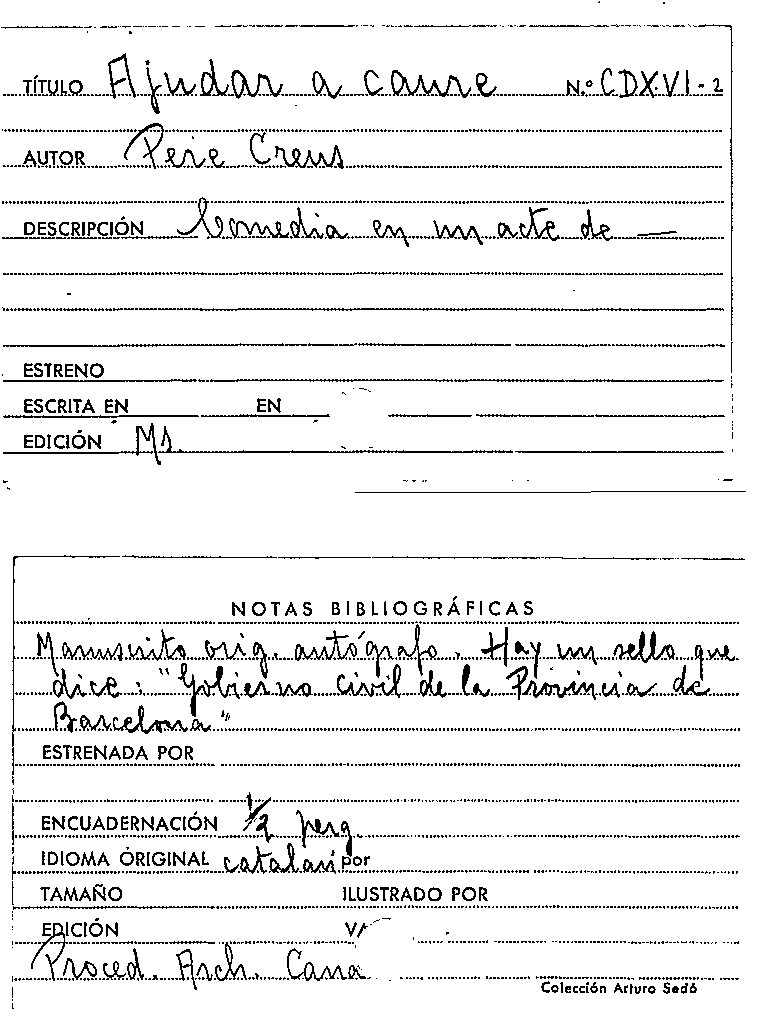 TÍTULO Ajudar a caure N.º CDXVI-2
AUTOR Pere Creus
DESCRIPCIÓN Comedia en un acte de —
ESTRENO
ESCRITA EN EN
EDICIÓN Ms.
NOTAS BIBLIOGRÁFICAS
Manuscrito orig. autógrafo. Hay un sello que
dice: "Gobierno civil de la Provincia de
Barcelona"
ESTRENADA POR
ENCUADERNACIÓN 1/2 perg.
IDIOMA ORIGINAL catalán por
TAMAÑO ILUSTRADO POR
EDICIÓN
Proced. Arch. Cana
Colección Arturo Sedó